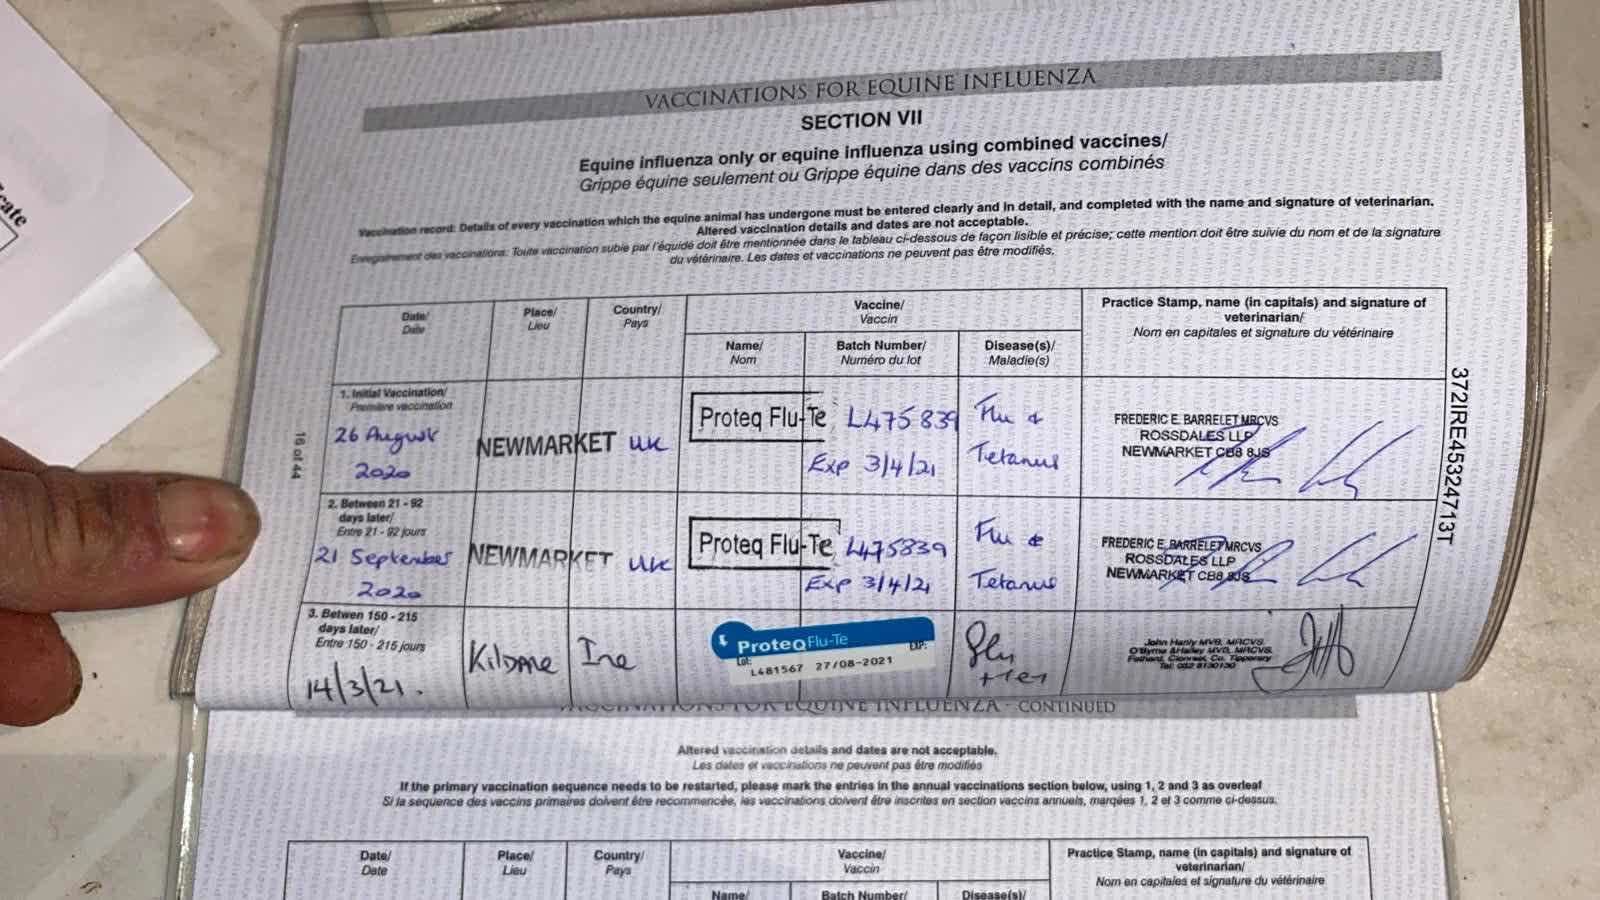 cate
VACCINATIONS FOR EQUINE INFLUENZA
SECTION VII
Equine influenza only or equine influenza using combined vaccines/
Grippe équine seulement ou Grippe équine dans des vaccins combinés
Vaccination record: Details of every vaccination which the equine animal has undergone must be entered clearly and in detail, and completed with the name and signature of veterinarian.
Altered vaccination details and dates are not acceptable.
Enregistrement des vaccinations: Toute vaccination subie par l'équidé doit être mentionnée dans le tableau ci-dessous de façon lisible et précise; cette mention doit être suivie du nom et de la signature
du vétérinaire. Les dates et vaccinations ne peuvent pas être modifiés.
Date/
Date
Place/
Lieu
Country/
Pays
Vaccine/
Vaccin
Name/
Nom
Batch Number/
Numéro du lot
Disease(s)/
Maladie(s)
Practice Stamp, name (in capitals) and signature of
veterinarian/
Nom en capitales et signature du vétérinaire
1. Initial Vaccination/
Première vaccination
26 August
2020
NEWMARKET
UK
Proteq Flu-Te
L475839
Exp 3/4/21
Flu &
Tetanus
FREDERIC E. BARRELET MRCVS
ROSSDALES LLP
NEWMARKET CB8 8JS
2. Between 21 - 92
days later/
Entre 21 - 92 jours
21 September
2020
NEWMARKET
UK
Proteq Flu-Te
L475839
Exp 3/4/21
Flu &
Tetanus
FREDERIC E. BARRELET MRCVS
ROSSDALES LLP
NEWMARKET CB8 8JS
3. Betwen 150 - 215
days later/
Entre 150 - 215 jours
14/3/21.
Kildare
Ire
ProteqFlu-Te
Lot:
EXP:
L481567 27/08-2021
Flu
+Tet
John Hanly MVB, MRCVS.
O'Byrne & Halley MVB, MRCVS.
Fethard, Clonmel, Co. Tipperary
Tel: 052 6130130
16 of 44
372IRE45324713T
VACCINATIONS FOR EQUINE INFLUENZA - CONTINUED
Altered vaccination details and dates are not acceptable.
Les dates et vaccinations ne peuvent pas être modifiés
If the primary vaccination sequence needs to be restarted, please mark the entries in the annual vaccinations section below, using 1, 2 and 3 as overleaf
Si la séquence des vaccins primaires doivent être recommencée, les vaccinations doivent être inscrites en section vaccins annuels, marquées 1, 2 et 3 comme ci-dessus.
Date/
Date
Place/
Lieu
Country/
Pays
Vaccine/
Vaccin
Name/
Batch Number/
Disease(s)/
Practice Stamp, name (in capitals) and signature of
veterinarian/
Nom en capitales et signature du vétérinaire